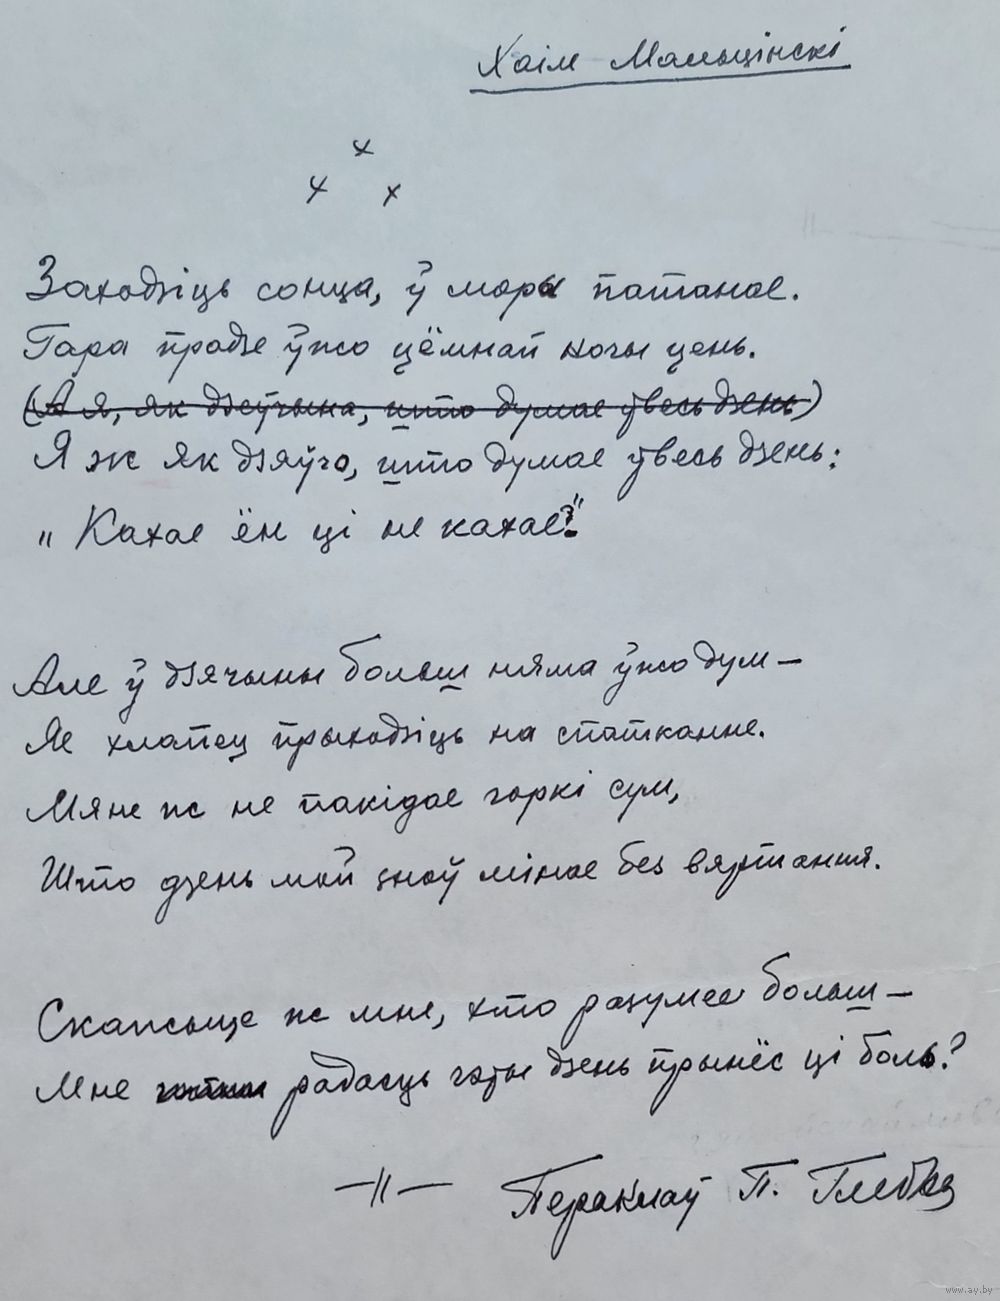 Хаім Мальцінскі
х
х х
Заходзіць сонца, ў моры патанае.
Гара прадзе ўжо цёмнай ночы цень.
(А я, як дзеўчына, што думае ўвесь дзень)
Я ж як дзяўчо, што думае ўвесь дзень:
"Кахае ён ці не кахае?"
Але ў дзячыны больш няма ўжо дум —
Яе хлапец прыходзіць на спатканне.
Мяне ж не пакідае горкі сум,
Што дзень мой зноў мінае без вяртання.
Скажыце ж мне, хто разумее больш —
Мне радасць гэты дзень прынёс ці боль?
—||— Пераклаў П. Глебка
www.ay.by